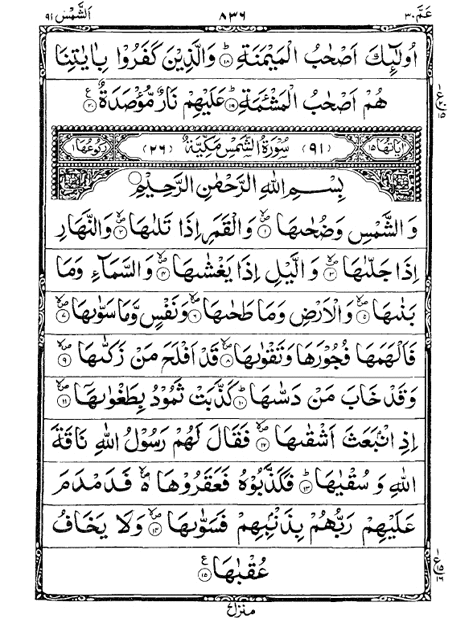 عَمَّ ٣٠ ٨٣٦ اَلشَّمْس ٩١
اُولٰٓئِكَ اَصْحٰبُ الْمَيْمَنَةِ ۝١٨ؕ وَالَّذِيْنَ كَفَرُوْا بِاٰيٰتِنَا
هُمْ اَصْحٰبُ الْمَشْئَمَةِ ۝١٩ؕ عَلَيْهِمْ نَارٌ مُّؤْصَدَةٌ ۝٢٠
اٰيَاتُهَا ١٥ (٩١) سُوْرَةُ الشَّمْسِ مَكِّيَّةٌ (٢٦) رُكُوْعُهَا ١
بِسْمِ اللّٰهِ الرَّحْمٰنِ الرَّحِيْمِ
وَالشَّمْسِ وَضُحٰىهَا ۝١ وَالْقَمَرِ اِذَا تَلٰىهَا ۝٢ وَالنَّهَارِ
اِذَا جَلّٰىهَا ۝٣ وَالَّيْلِ اِذَا يَغْشٰىهَا ۝٤ وَالسَّمَآءِ وَمَا
بَنٰىهَا ۝٥ وَالْاَرْضِ وَمَا طَحٰىهَا ۝٦ وَنَفْسٍ وَّمَا سَوّٰىهَا ۝٧
فَاَلْهَمَهَا فُجُوْرَهَا وَتَقْوٰىهَا ۝٨ قَدْ اَفْلَحَ مَنْ زَكّٰىهَا ۝٩
وَقَدْ خَابَ مَنْ دَسّٰىهَا ۝١٠ كَذَّبَتْ ثَمُوْدُ بِطَغْوٰىهَآ ۝١١
اِذِ انْۢبَعَثَ اَشْقٰىهَا ۝١٢ فَقَالَ لَهُمْ رَسُوْلُ اللّٰهِ نَاقَةَ
اللّٰهِ وَسُقْيٰهَا ۝١٣ فَكَذَّبُوْهُ فَعَقَرُوْهَا فَدَمْدَمَ
عَلَيْهِمْ رَبُّهُمْ بِذَنْۢبِهِمْ فَسَوّٰىهَا ۝١٤ وَلَا يَخَافُ
عُقْبٰهَا ۝١٥
منزل